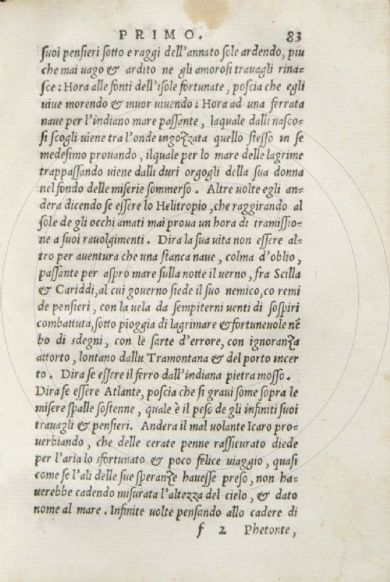 PRIMO. 83
suoi pensieri sotto e raggi dell'annato sole ardendo, piu
che mai uago & ardito ne gli amorosi trauagli rina-
sce: Hora alle fonti dell'isole fortunate, poscia che egli
uiue morendo & muor uiuendo: Hora ad una ferrata
naue per l'indiano mare passante, laquale dalli nasco-
si scogli uiene tra l'onde ingozzata quello stesso in se
medesimo prouando, ilquale per lo mare delle lagrime
trappassando uiene dalli duri orgogli della sua donna
nel fondo delle miserie sommerso. Altre uolte egli an-
derà dicendo se essere lo Helitropio, che raggirando al
sole de gli occhi amati mai proua un hora di tramissio-
ne a suoi rauolgimenti. Dira la sua uita non essere al-
tro per auentura che una stanca naue, colma d'oblio,
passante per aspro mare sulla notte il uerno, fra Scilla
& Cariddi, al cui gouerno siede il suo nemico, co remi
de pensieri, con la uela da sempiterni uenti di sospiri
combattuta, sotto pioggia di lagrimare & fortuneuole nē
bo di sdegni, con le sarte d'errore, con ignoranza
attorto, lontano dalla Tramontana & del porto incer
to. Dira se essere il ferro dall'indiana pietra mosso.
Dira se essere Atlante, poscia che si graui some sopra le
misere spalle sostenne, quale è il peso de gli infiniti suoi
trauagli & pensieri. Andera il mal uolante Icaro pro-
uerbiando, che delle cerate penne rassicurato diede
per l'aria lo sfortunato & poco felice uiaggio, quasi
come se l'ali delle sue speranze hauesse preso, non ha-
uerebbe cadendo misurata l'altezza del cielo, & dato
nome al mare. Infinite uolte pensando allo cadere di
f 2 Phetonte,